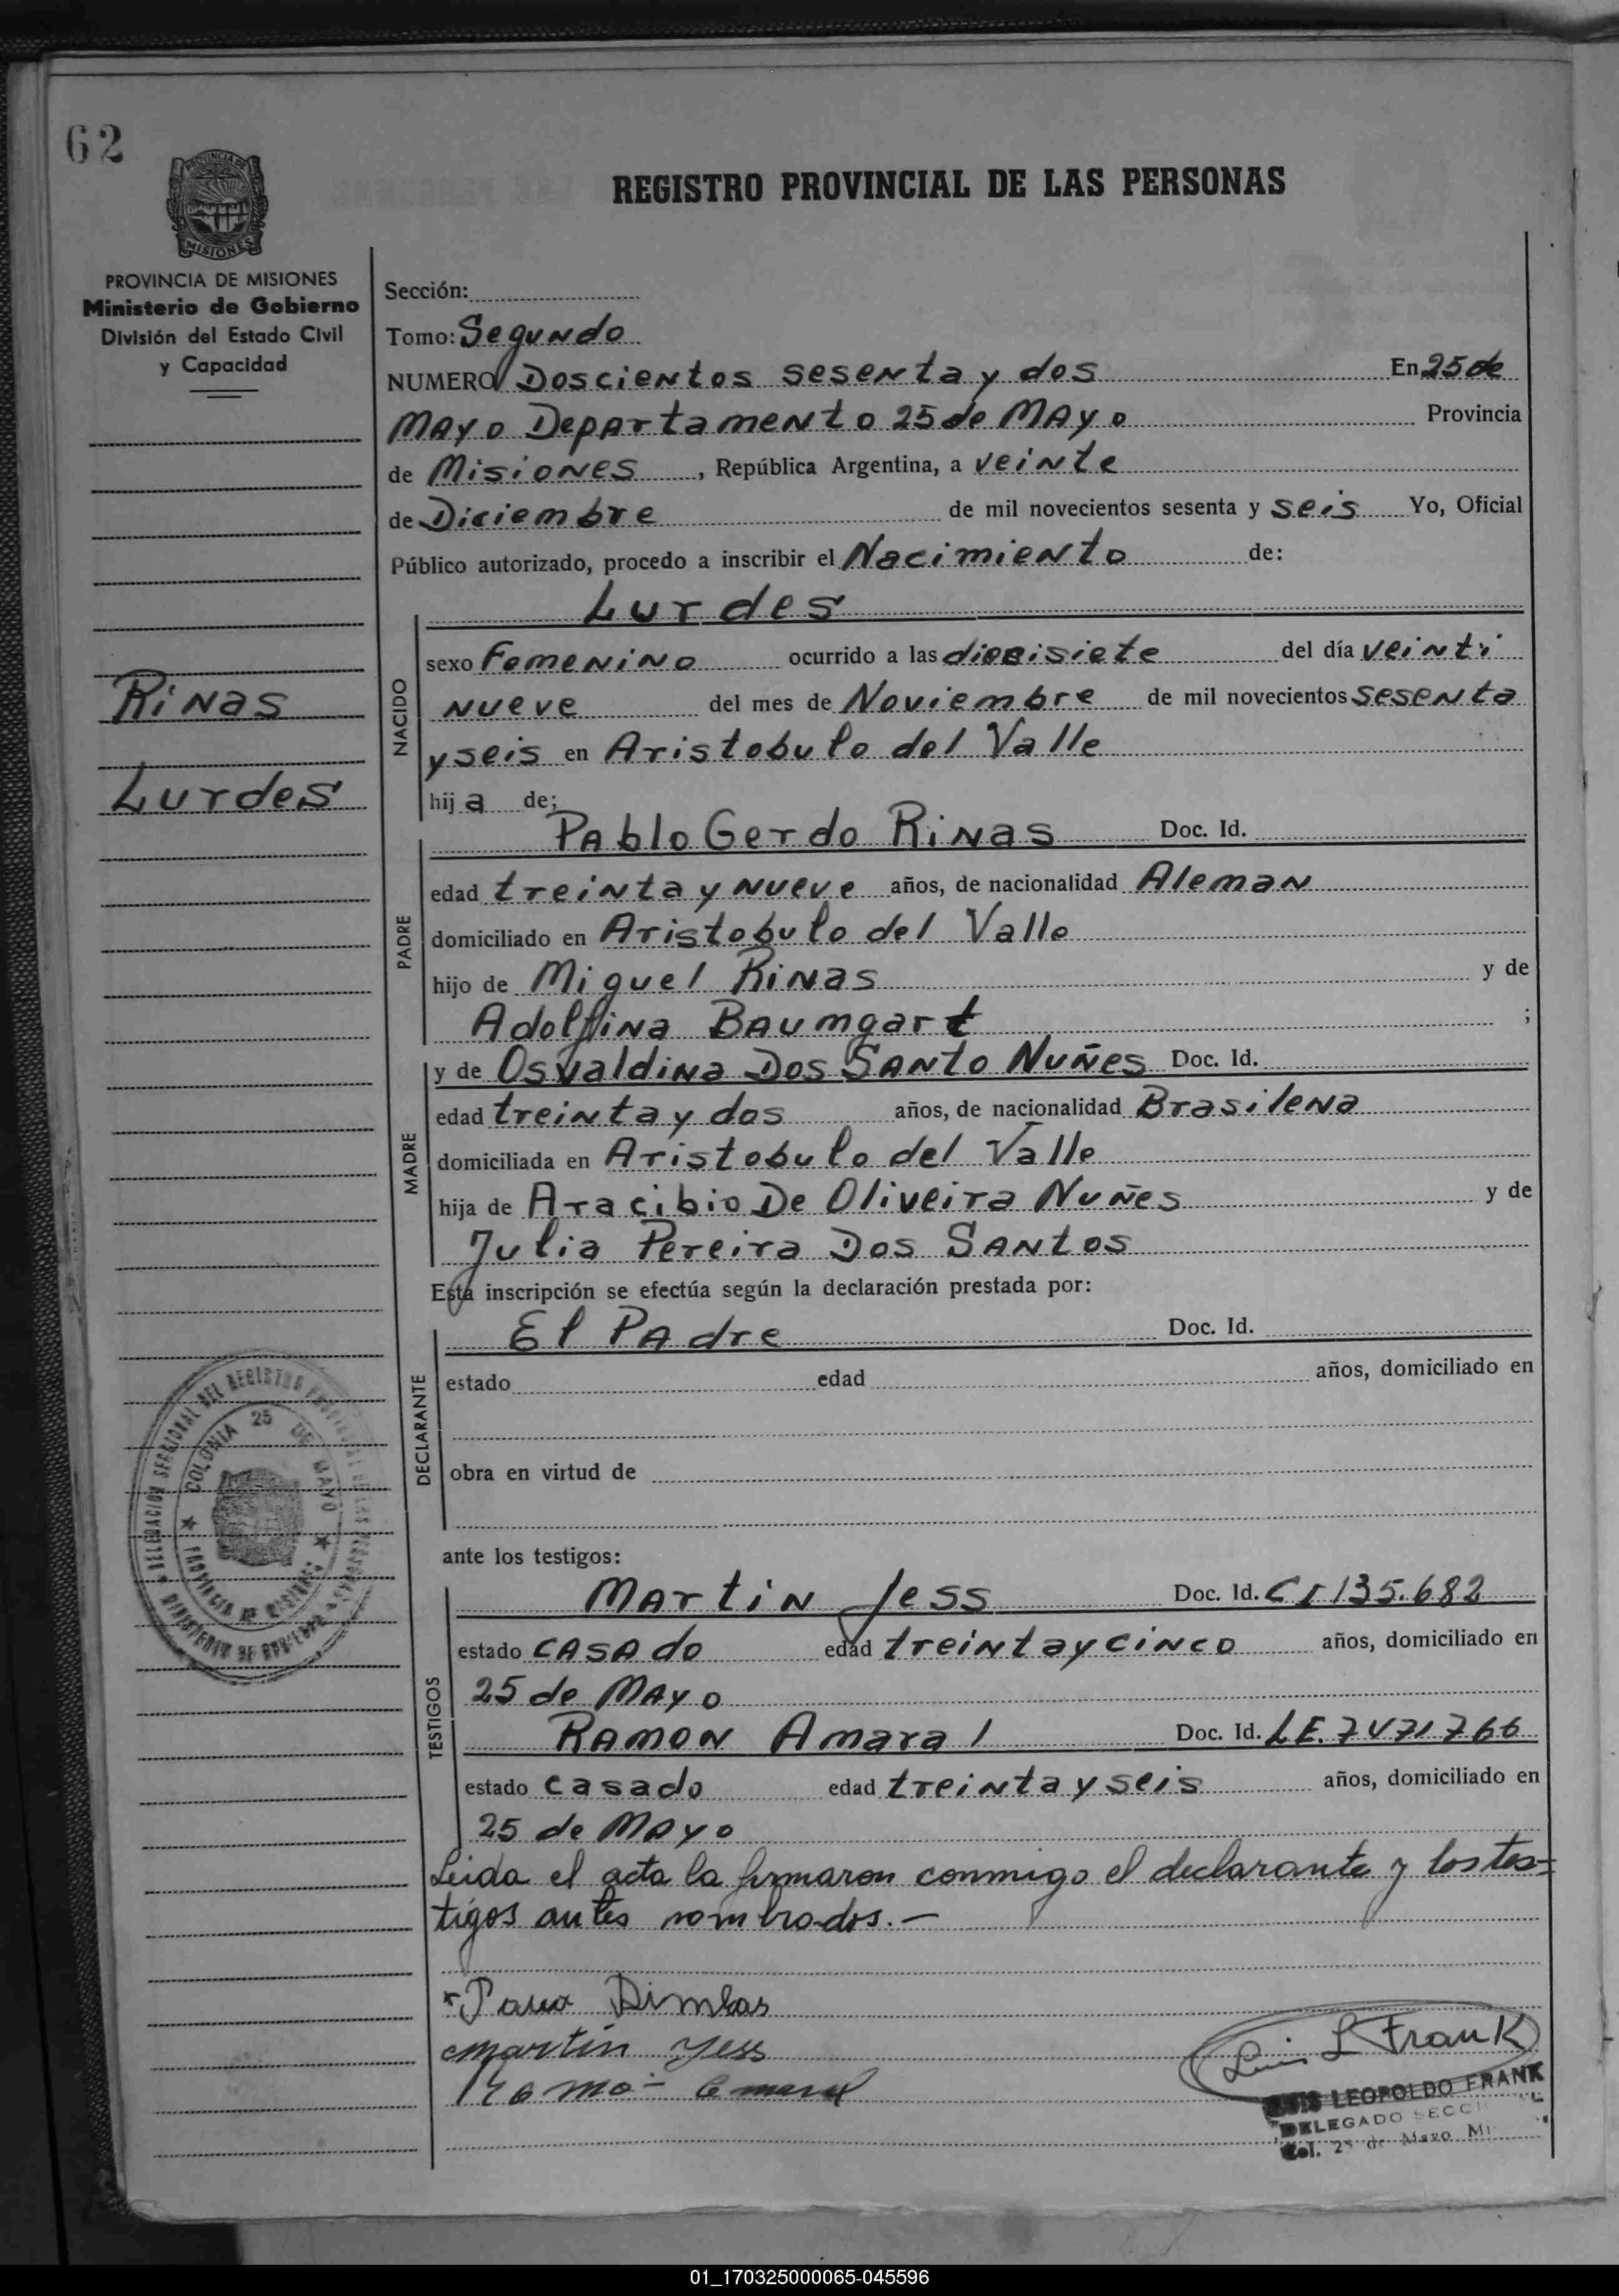 62
PROVINCIA DE
MISIONES
REGISTRO PROVINCIAL DE LAS PERSONAS
PROVINCIA DE MISIONES
Ministerio de Gobierno
División del Estado Civil
y Capacidad
Rinas
Lurdes
Sección:
Tomo: Segundo
NUMERO Doscientos sesenta y dos En 25 de
Mayo Departamento 25 de Mayo Provincia
de Misiones, República Argentina, a veinte
de Diciembre de mil novecientos sesenta y seis Yo, Oficial
Público autorizado, procedo a inscribir el Nacimiento de:
Lurdes
NACIDO
sexo Femenino ocurrido a las diesisiete del día veinti
nueve del mes de Noviembre de mil novecientos sesenta
y seis en Aristobulo del Valle
hija de;
Pablo Gerdo Rinas Doc. Id.
PADRE
edad treinta y nueve años, de nacionalidad Aleman
domiciliado en Aristobulo del Valle
hijo de Miguel Rinas y de
Adolfina Baumgart ;
y de Osvaldina Dos Santo Nuñes Doc. Id.
MADRE
edad treinta y dos años, de nacionalidad Brasilena
domiciliada en Aristobulo del Valle
hija de Aracibio De Oliveira Nuñes y de
Julia Pereira Dos Santos
Esta inscripción se efectúa según la declaración prestada por:
El Padre Doc. Id.
DECLARANTE
estado edad años, domiciliado en
obra en virtud de
ante los testigos:
Martin Jess Doc. Id. CI 135.682
TESTIGOS
estado casado edad treinta y cinco años, domiciliado en
25 de Mayo
Ramon Amaral Doc. Id. LE. 7471766
estado casado edad treinta y seis años, domiciliado en
25 de Mayo
Leida el acta la firmaron conmigo el declarante y los tes=
tigos antes nombrados.—
Martin Jess
Luis L Frank
LUIS LEOPOLDO FRANK
DELEGADO SECCI
Col. 25 de Mayo Mi
DELEGACION SECCIONAL DEL REGISTRO PROVINCIAL DE LAS PERSONAS
COLONIA 25 DE MAYO
PROVINCIA DE MISIONES
MINISTERIO DE GOBIERNO
01_170325000065-045596